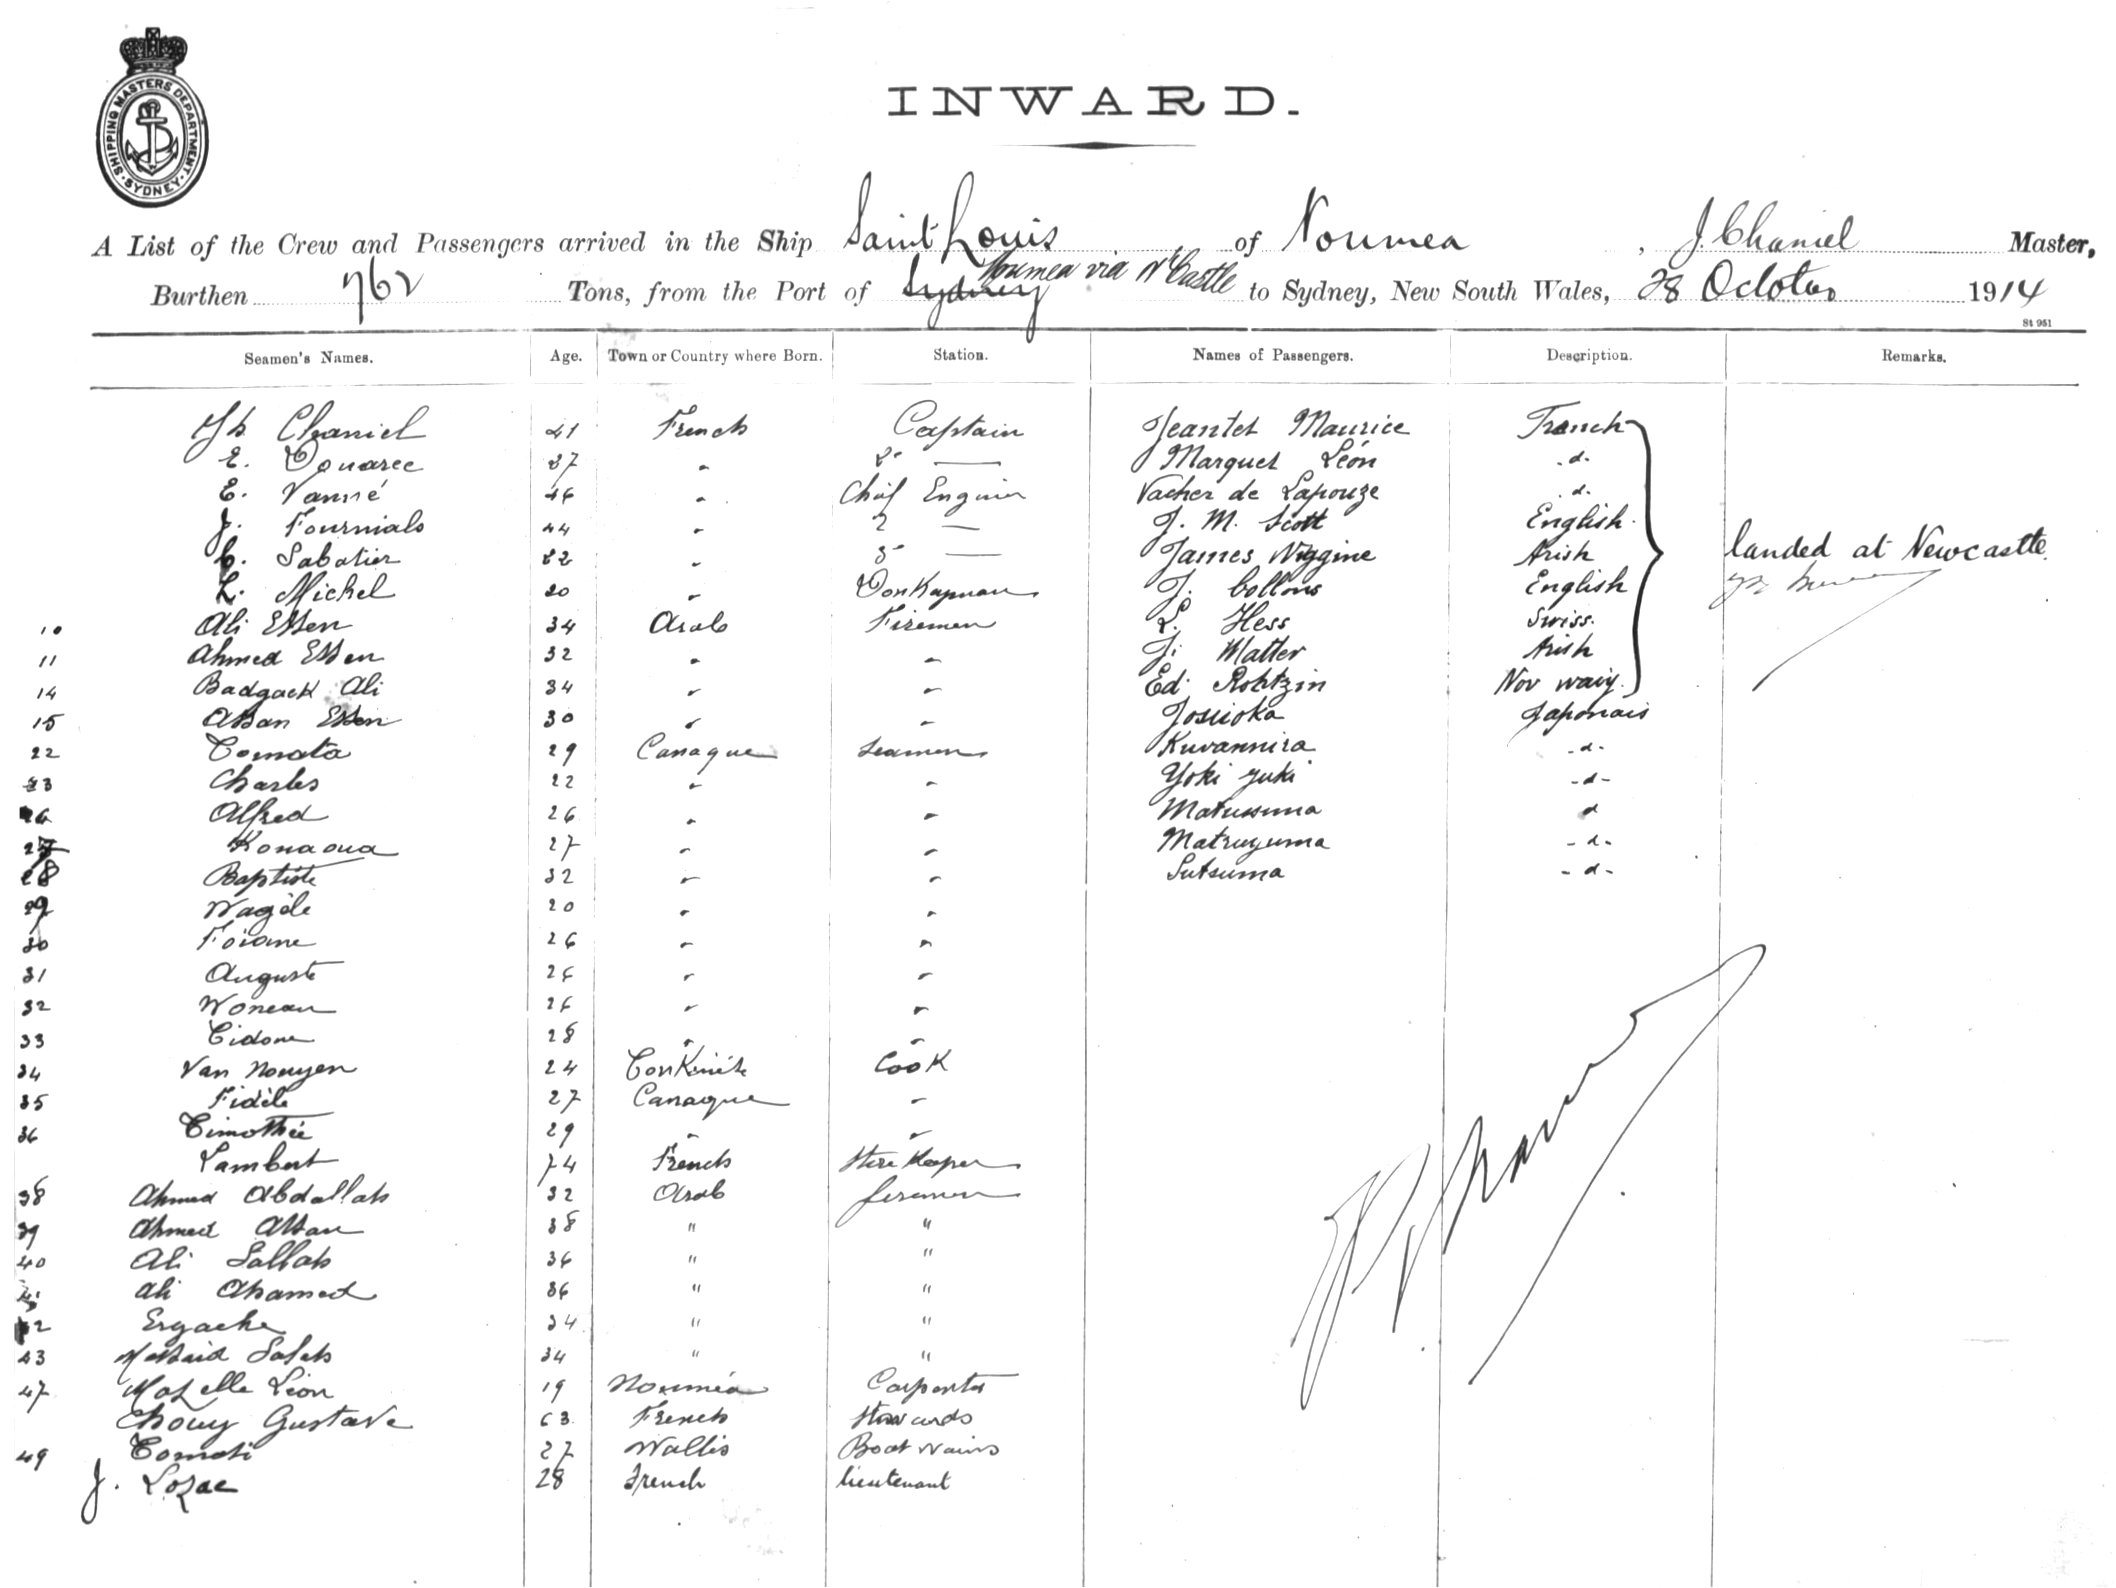 SHIPPING MASTERS DEPARTMENT. SYDNEY.
INWARD.
A List of the Crew and Passengers arrived in the Ship Saint Louis of Noumea, J. Chaniel Master,
Burthen 762 Tons, from the Port of Sydney Noumea via N'Castle to Sydney, New South Wales, 28 October 1914
St 951
Seamen's Names. Age. Town or Country where Born. Station. Names of Passengers. Description. Remarks.
Jh Chaniel 41 French Captain Jeantet Maurice French
E. Douarec 37 " 2e — Marquet Léon d.
E. Vanné 46 " Chief Enginier Vacher de Lapouze d.
J. Fournials 44 " 2 — J. M. Scott English
C. Sabatier 22 " 3e — James Wiggine Irish landed at Newcastle.
L. Michel 20 " Donkeyman J. Collons English
10 Ali Essen 34 Arab Firemen L. Hess Swiss.
11 Ahmed Essen 32 " " J. Matter Irish
14 Badgack Ali 34 " " Ed. Rohtzin Nor waiy.
15 Assan Essen 30 " " Josiioka Japonais
22 Tomata 29 Canaque Seamen Kuvannira -d-
23 Charles 22 " " Yoki yuki -d-
26 Alfred 26 " " Matussuma d
27 Konaoua 27 " " Matsuyuma -d-
28 Baptiste 32 " " Sutsuma -d-
29 Wagèle 20 " "
30 Foiane 26 " "
31 Auguste 26 " "
32 Woneau 26 " "
33 Cidone 28 " "
34 Van Nouyen 24 Tonkinés Cook
35 Fidèle 27 Canaque "
36 Timothée 29 " "
Lambert 74 French Store Keeper
38 Ahmed Abdallah 32 Arab firemen
39 Ahmed Assan 38 " "
40 Ali Sallah 36 " "
41 Ali Ahamed 36 " "
42 Ergache 34 " "
43 Messaid Saleh 34 " "
47 Mazelle Léon 19 Nouméa Carpenter
Chouy Gustave 63 French Stewards
49 Tomati 27 Wallis Boat Wains
J. Lozac 28 French lieutenant